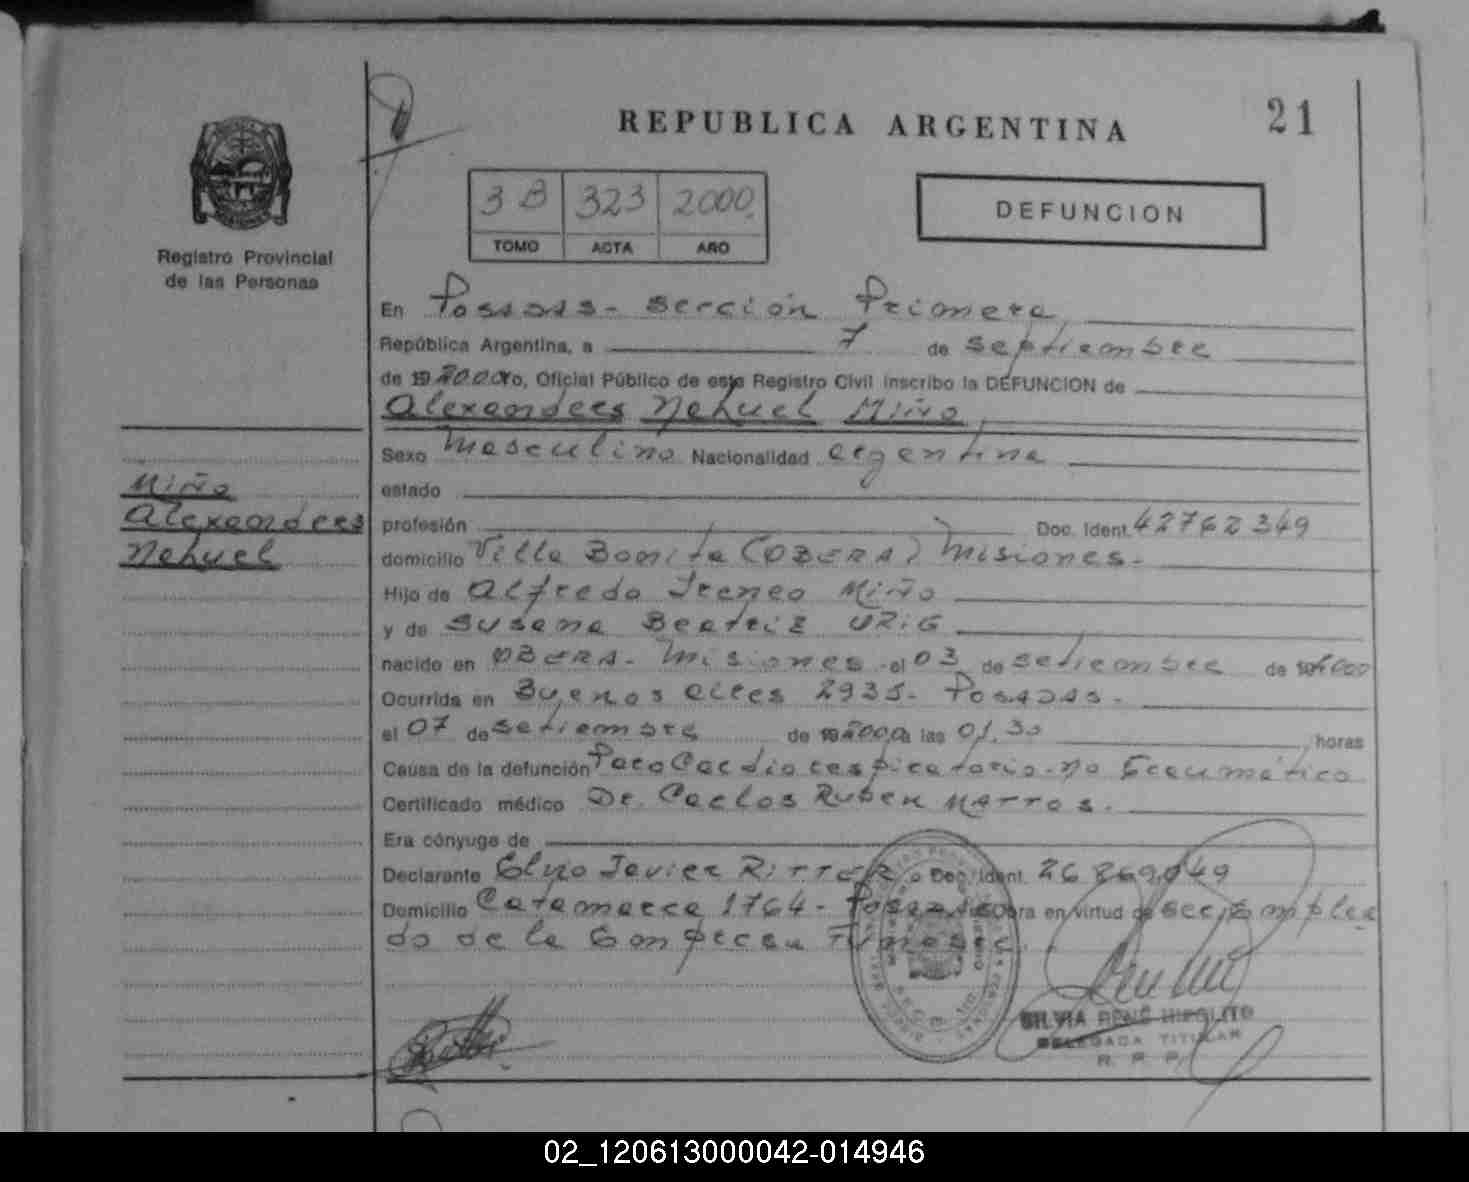 21
REPUBLICA ARGENTINA
3 B 323 2000
TOMO ACTA AÑO
DEFUNCION
Registro Provincial
de las Personas
En Posadas - sección Primera
República Argentina, a 7 de septiembre
de 19 2000 Yo, Oficial Público de este Registro Civil inscribo la DEFUNCION de
Alexanders Nehuel Miño
Sexo Masculino Nacionalidad argentina
estado
profesión Doc. Ident. 42762349
domicilio Villa Bonita (OBERA) Misiones.
Hijo de Alfredo Ireneo Miño
y de Susana Beatriz URIG
nacido en OBERA - Misiones - el 03 de setiembre de 19 2000
Ocurrida en Buenos aires 2935 - Posadas -
el 07 de setiembre de 19 2000 a las 01.30 horas
Causa de la defunción Paro Cardiorespiratorio - no traumático
Certificado médico Dr. Carlos Ruben Mattos.
Era cónyuge de
Declarante Javier RITTER Doc. Ident.
Domicilio Catamarca 1764 - Posadas Obra en virtud de ser Emplea
do de la Empresa Funebre.
Miño
Alexanders
Nehuel
SILVIA RENÉ HIPOLITO
DELEGADA TITULAR
R. P. P.
02_120613000042-014946